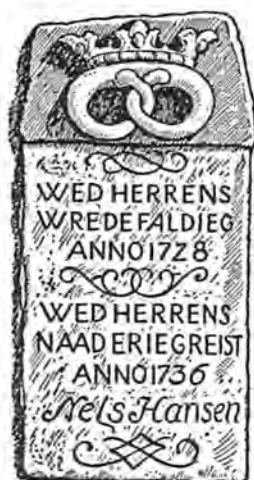 WED HERRENS
WREDE FALD IEG
ANNO 1728
WED HERRENS
NAAD ER IEG REIST
ANNO 1736
Nels Hansen